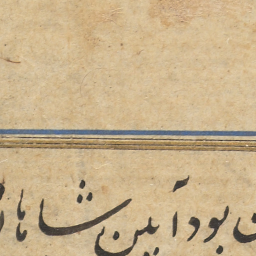 بود آیین شاها